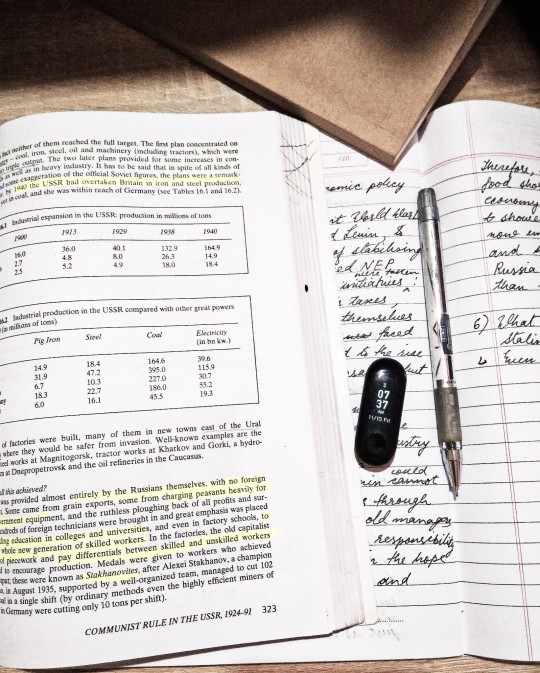 fact neither of them reached the full target. The first plan concentrated on
coal, iron, steel, oil and machinery (including tractors), which were
triple output. The two later plans provided for some increases in con-
as well as in heavy industry. It has to be said that in spite of all kinds of
some exaggeration of the official Soviet figures, the plans were a remark-
by 1940 the USSR had overtaken Britain in iron and steel production,
yet in coal, and she was within reach of Germany (see Tables 16.1 and 16.2).
Industrial expansion in the USSR: production in millions of tons
1900 1913 1929 1938 1940
16.0 36.0 40.1 132.9 164.9
2.7 4.8 8.0 26.3 14.9
2.5 5.2 4.9 18.0 18.4
16.2 Industrial production in the USSR compared with other great powers
(in millions of tons)
Pig Iron Steel Coal Electricity
(in bn kw.)
14.9 18.4 164.6 39.6
31.9 47.2 395.0 115.9
6.7 10.3 227.0 30.7
18.3 22.7 186.0 55.2
6.0 16.1 45.5 19.3
of factories were built, many of them in new towns east of the Ural
where they would be safer from invasion. Well-known examples are the
works at Magnitogorsk, tractor works at Kharkov and Gorki, a hydro-
at Dnepropetrovsk and the oil refineries in the Caucasus.
all this achieved?
was provided almost entirely by the Russians themselves, with no foreign
Some came from grain exports, some from charging peasants heavily for
equipment, and the ruthless ploughing back of all profits and sur-
hundreds of foreign technicians were brought in and great emphasis was placed
education in colleges and universities, and even in factory schools, to
whole new generation of skilled workers. In the factories, the old capitalist
of piecework and pay differentials between skilled and unskilled workers
to encourage production. Medals were given to workers who achieved
output; these were known as Stakhanovites, after Alexei Stakhanov, a champion
in August 1935, supported by a well-organized team, managed to cut 102
in a single shift (by ordinary methods even the highly efficient miners of
in Germany were cutting only 10 tons per shift).
COMMUNIST RULE IN THE USSR, 1924-91 323
economic policy
World War
Lenin, &
of stabilising
NEP
were taken
initiatives
taxes,
themselves
faced
to the rise
but
07
37
AM
11/15 Fri
could
cannot
through
old managers
responsibility
the hope
and
Therefore,
food sho
economy
to show
more
and
Russia
than
6) What
Stalin
Even